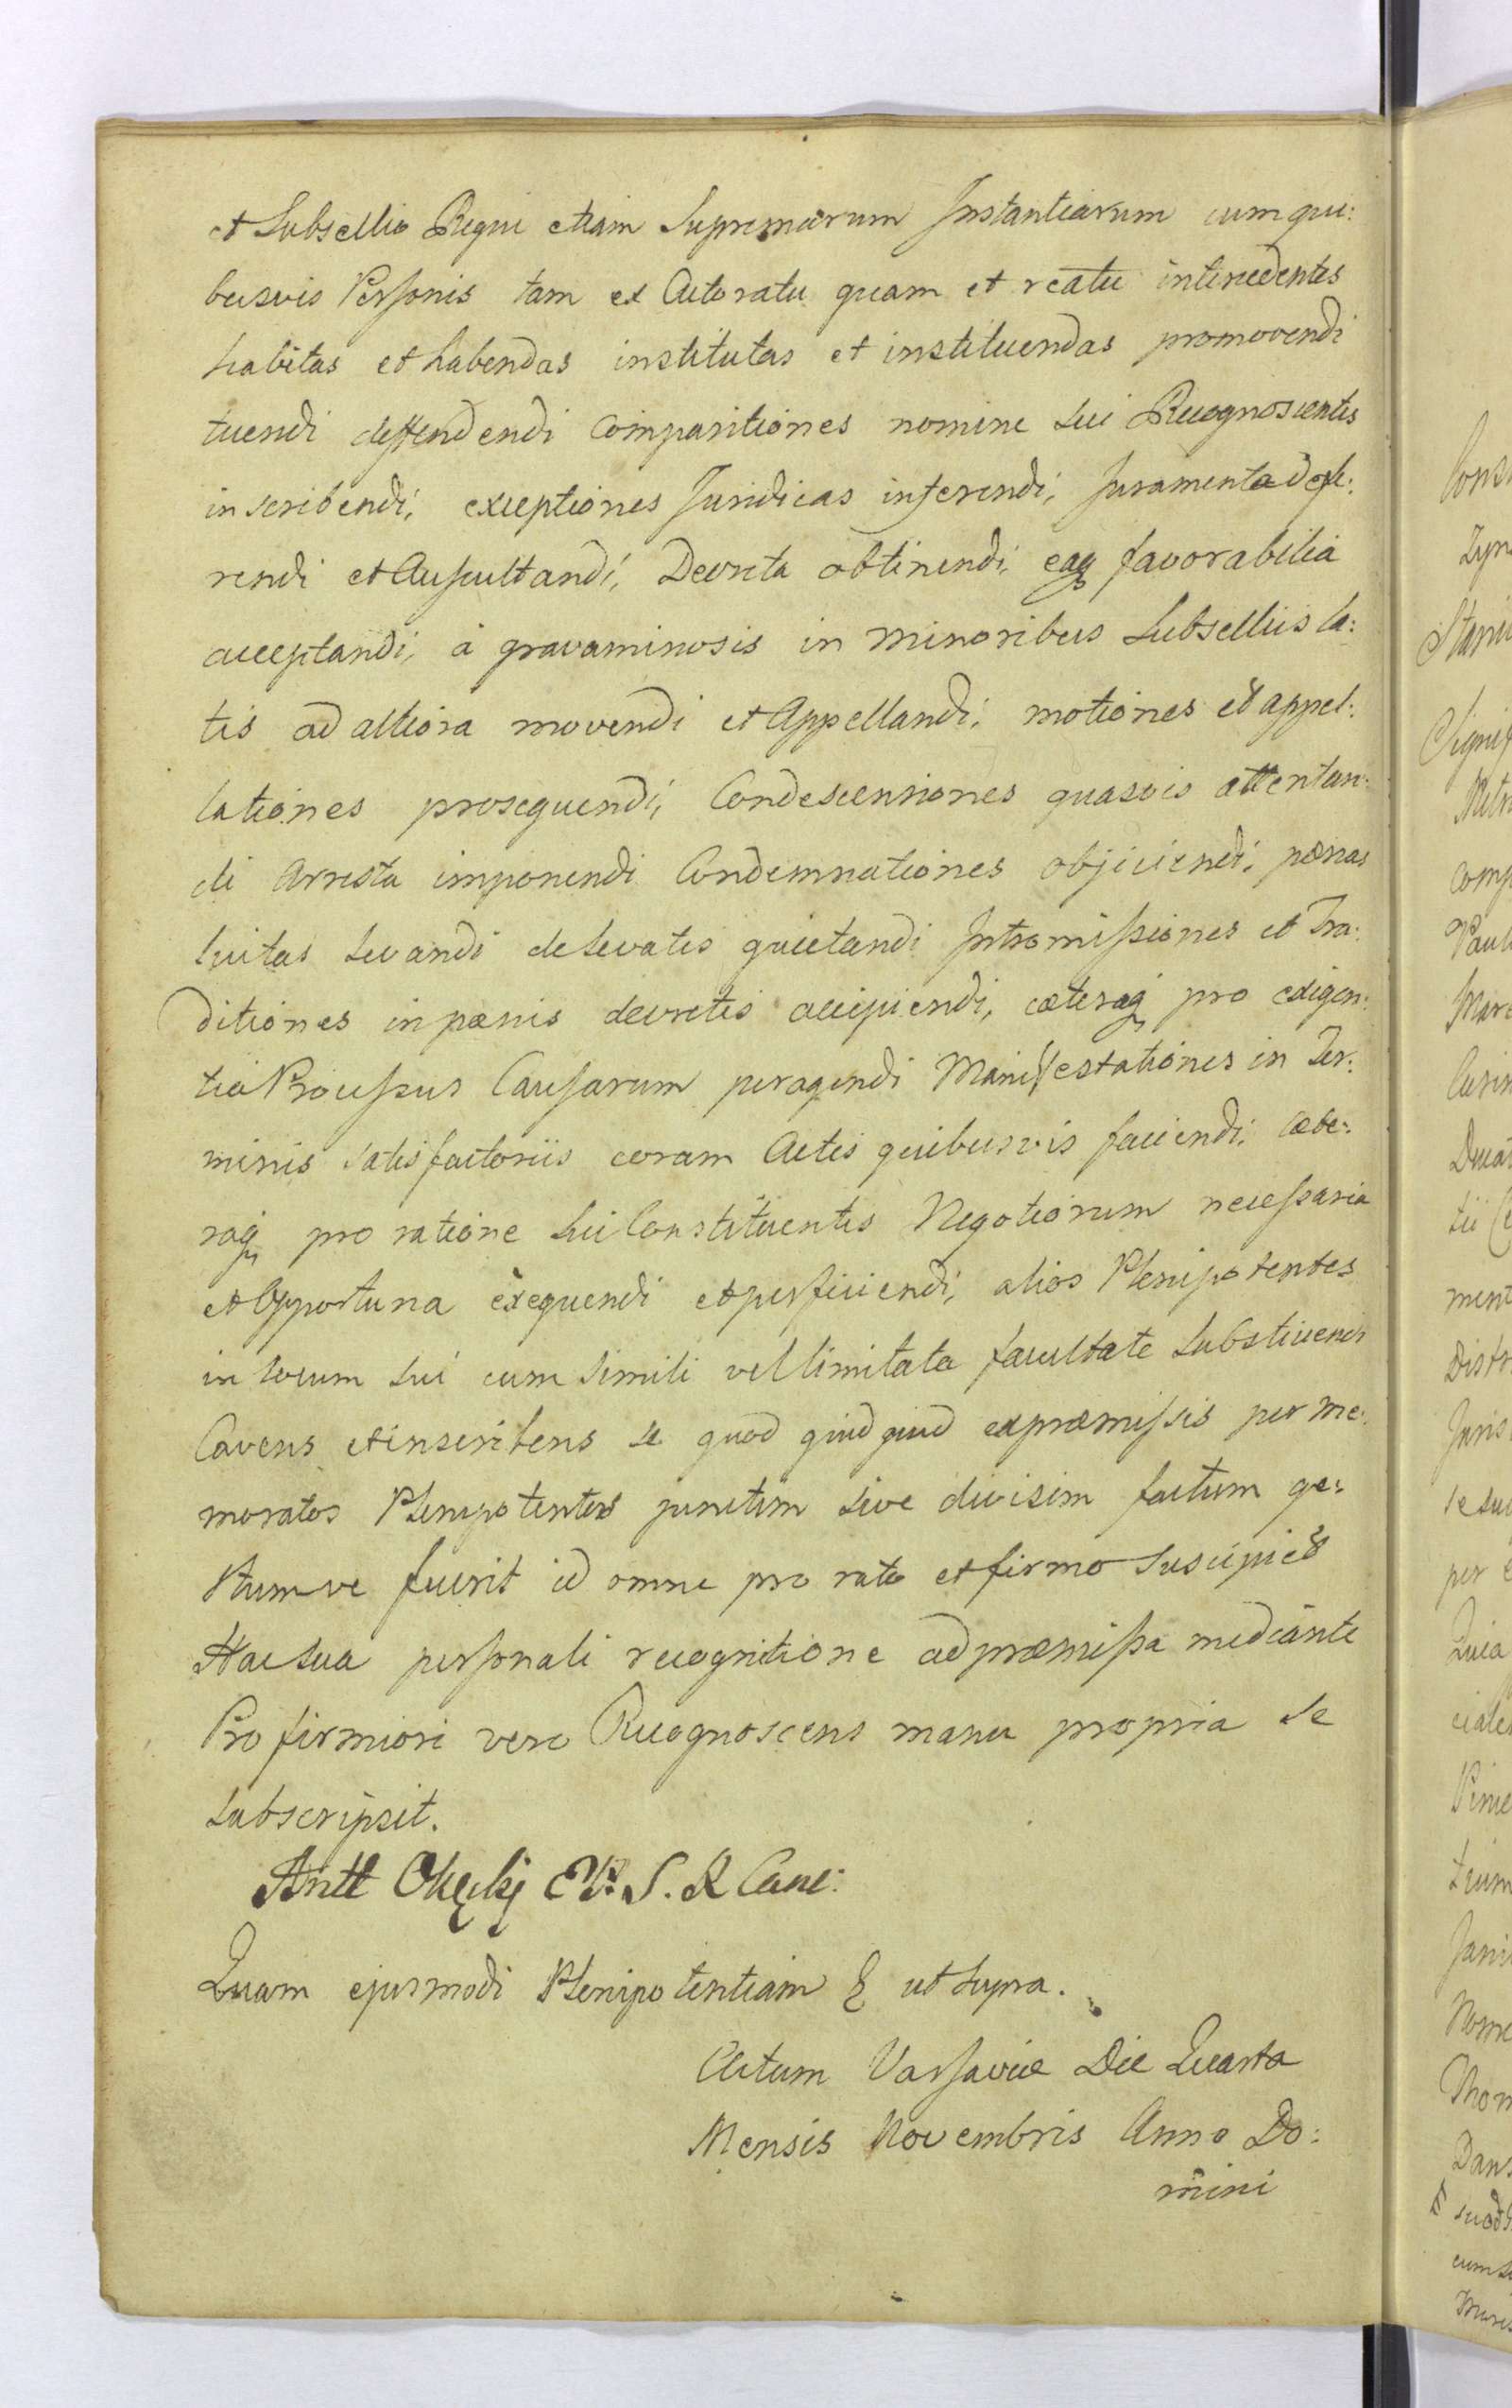 et Subsellio Regni etiam Supremarum Instantiarum cum qui:
busvis Personis tam ex Actoratu quam et reatu intercedentes
habitas et habendas institutas et instituendas promovendi
tuendi deffendendi Comparitiones nomine sui Recognoscentis
inscribendi, exceptiones Juridicas inferendi, Juramenta defe:
rendi et Auscultandi, Decreta obtinendi, eaq favorabilia
acceptandi, à gravaminosis in Minoribus Subselliis la:
tis ad altiora movendi et Appellandi, motiones et appel:
lationes prosequendi, Condescensiones quasvis attentan:
di Arresta imponendi Condemnationes objiciendi, pænas
luitas levandi de levatis quietandi Intromissiones et Tra:
ditiones in pænis decretis accipiendi, cæteraq pro exigen:
tia Processus Causarum peragendi Manifestationes in Ter:
minis satisfactoriis coram Actis quibusvis faciendi, cæte:
raq pro ratione sui Constituentis Negotiorum necessaria
et Opportuna exequendi et perficiendi, alios Plenipotentes
in locum sui cum simili vel limitata facultate substiuendi
Cavens et inscribens se quod quidquid ex præmissis per me:
moratos Plenipotentes junctim sive divisim factum ge:
stumve fuerit id omne pro rato et firmo suscipiet
Hac sua personali recognitione ad præmissa mediante
Pro firmiori vero Recognoscens manu propria se
subscripsit.
Antt Okęcki E P. S. R Canc:
Quam ejusmodi Plenipotentiam & ut supra.
Actum Varsaviæ Die Quarta
Mensis Novembris Anno Do:
mini